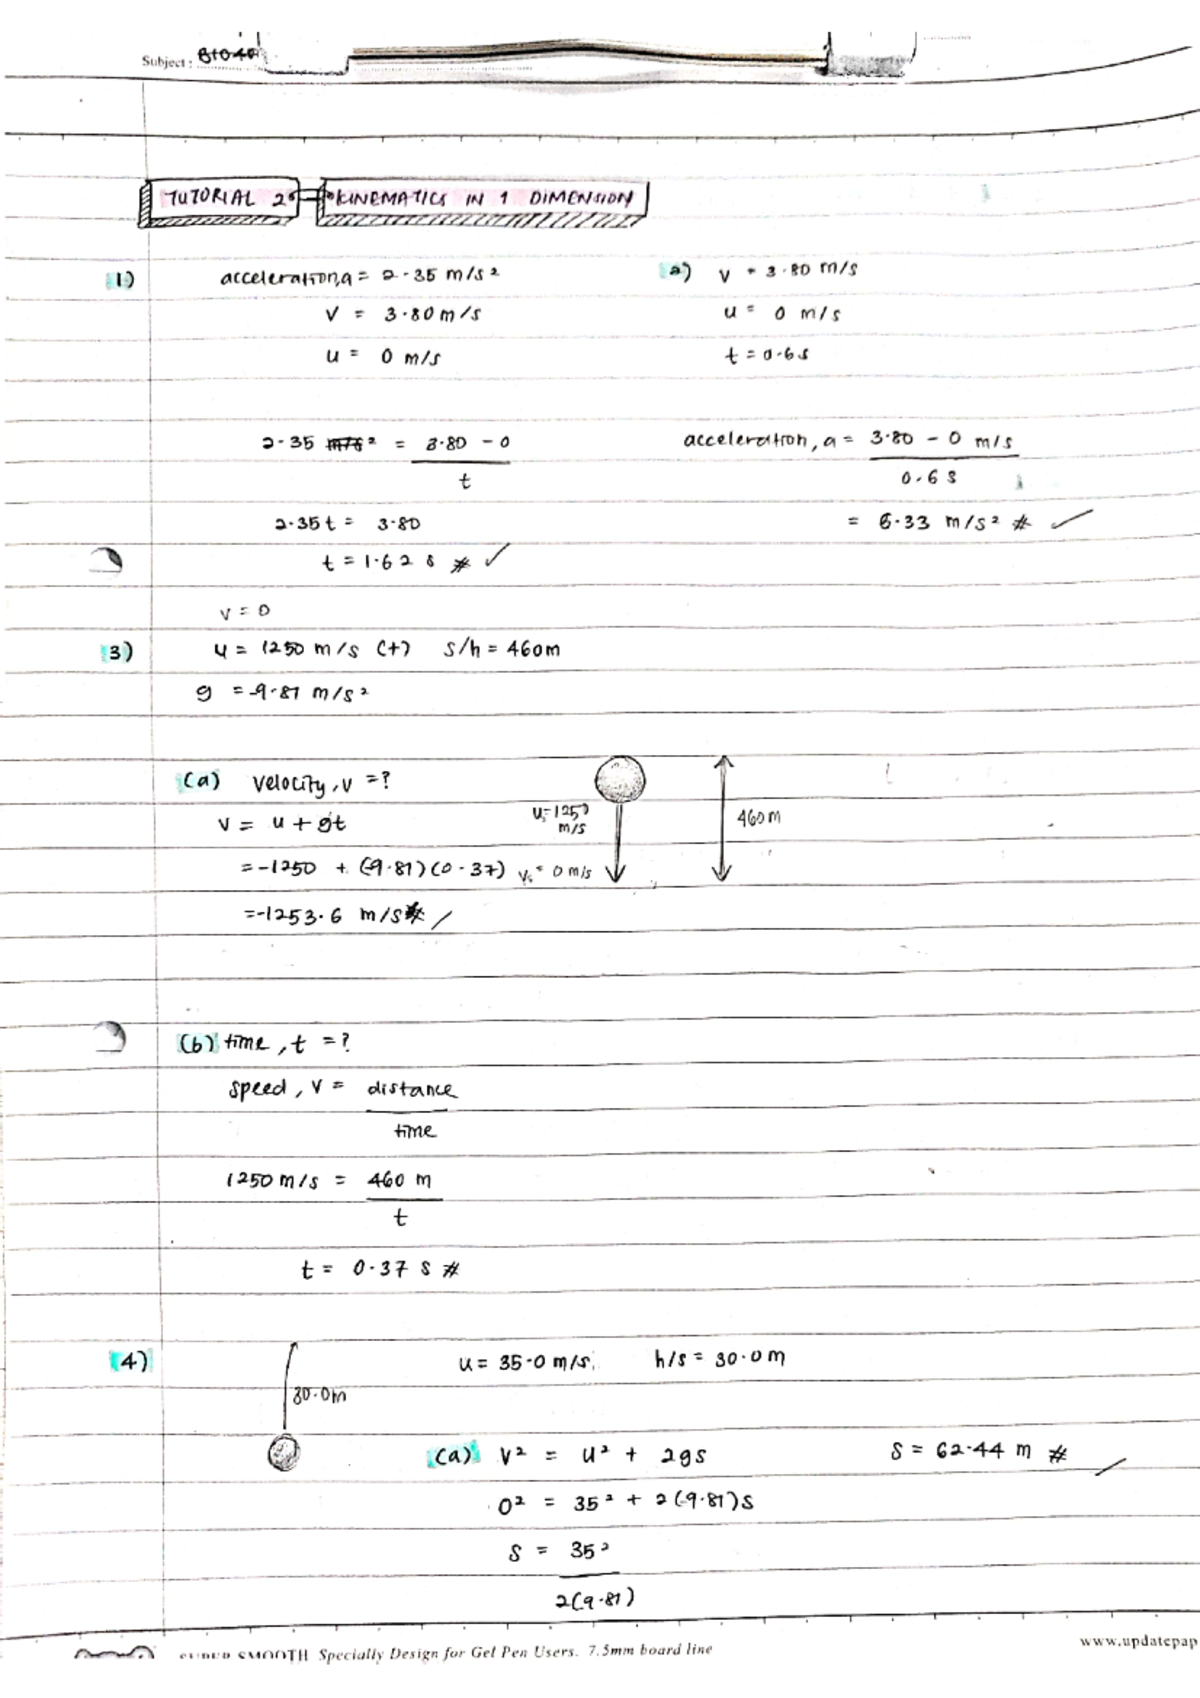 Subject: BIO40
TUTORIAL 2 KINEMATICS IN 1 DIMENSION
1) acceleration, a = 2.35 m/s²
V = 3.80 m/s
u = 0 m/s
2.35 m/s² = 3.80 - 0
t
2.35t = 3.80
t = 1.62 s # ✓
2) V = 3.80 m/s
u = 0 m/s
t = 0.6s
acceleration, a = 3.80 - 0 m/s
0.6 s
= 6.33 m/s² # ✓
V = 0
3) u = 1250 m/s (+) s/h = 460m
g = -9.81 m/s²
(a) velocity, v = ?
V = u + gt
= -1250 + (-9.81)(0.37)
= -1253.6 m/s #
u = 1250
m/s
V = 0 m/s
460m
(b) time, t = ?
speed, V = distance
time
1250 m/s = 460 m
t
t = 0.37 s #
4) u = 35.0 m/s, h/s = 30.0 m
30.0m
(a) V² = u² + 2gs
0² = 35² + 2(-9.81)s
s = 35²
2(9.81)
s = 62.44 m #
SUPER SMOOTH Specially Design for Gel Pen Users. 7.5mm board line
www.updatepap